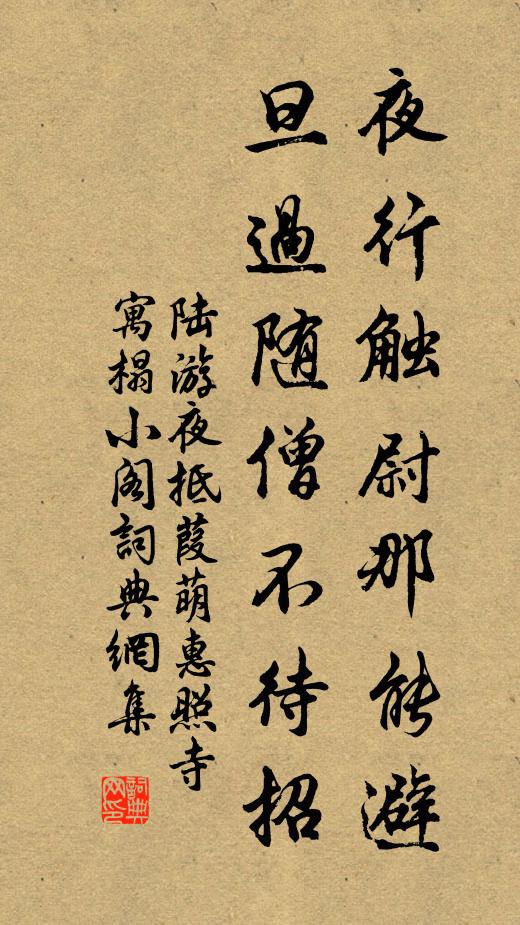 夜行触尉那能避
旦過随僧不待招
陆游夜抵葭萌惠照寺
寓榻小阁詞典網集
詞典
网印